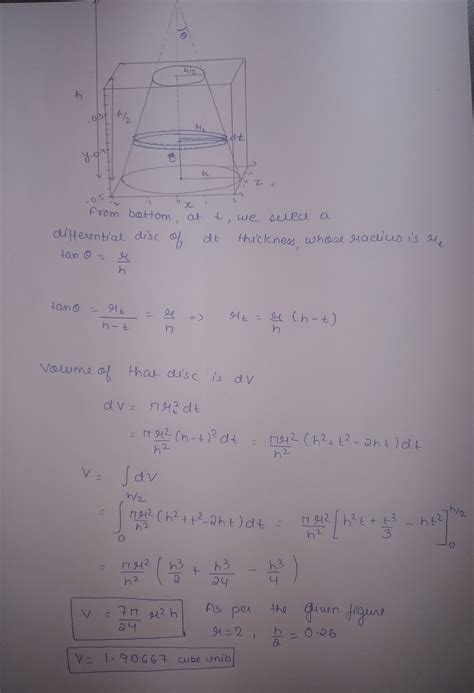 θ
r/2
h
h/2
r_t
dt
t
r
y
x
z
From bottom, at t, we select a
differential disc of dt thickness, whose radius is r_t
tan θ = r/h
tan θ = r_t/(h-t) = r/h => r_t = r/h (h-t)
Volume of that disc is dV
dV = πr_t² dt
= πr²/h² (h-t)² dt = πr²/h² (h²+t²-2ht) dt
V = ∫dV
= ∫₀^{h/2} πr²/h² (h²+t²-2ht) dt = πr²/h² [h²t + t³/3 - ht²]₀^{h/2}
= πr²/h² (h³/2 + h³/24 - h³/4)
V = 7π/24 r²h As per the given figure
r=2, h/2 = 0.26
V= 1.90667 cube unib